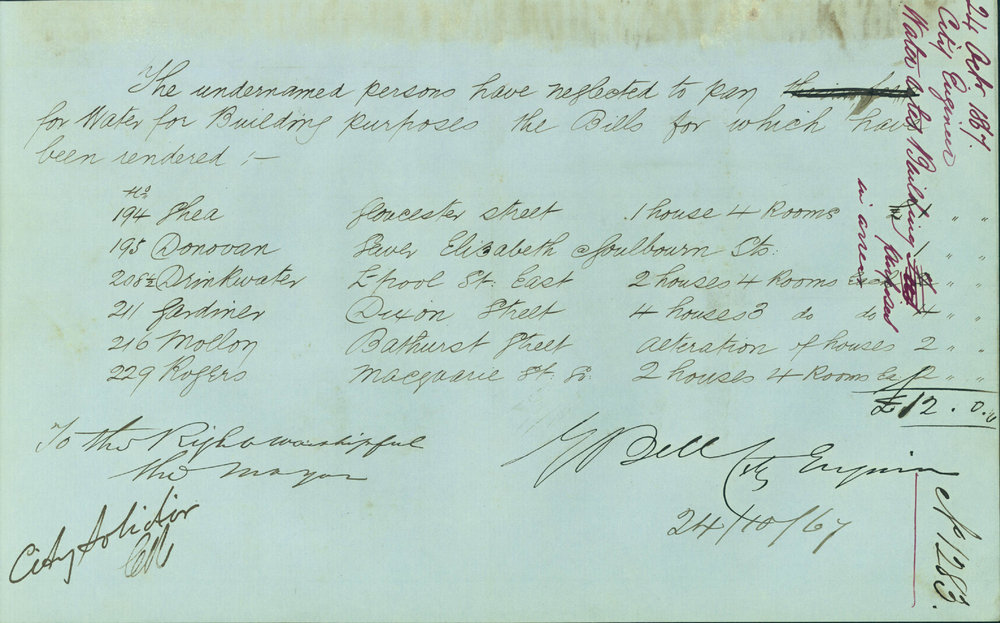 The undernamed persons have neglected to pay
for Water for Building purposes the Bills for which have
been rendered :-
No
194 Shea Gloucester street 1 house 4 Rooms " "
195 Donovan Sewer Elizabeth Goulbourn Sts. " "
208½ Drinkwater L'pool St. East 2 houses 4 Rooms Ea " "
211 Gardiner Dixon Street 4 houses 3 do do 4 " "
216 Mollon Bathurst Street alteration of houses 2 " "
229 Rogers Macquarie St. So. 2 houses 4 Rooms Ea 2 " "
£12 . 0 . 0
To the Right worshipful
the Mayor
E Bell City Engineer
24/10/67
City Solicitor
24 Oct 1867.
City Engineer
Water rates Building
purposes
in arrear
No 1283.